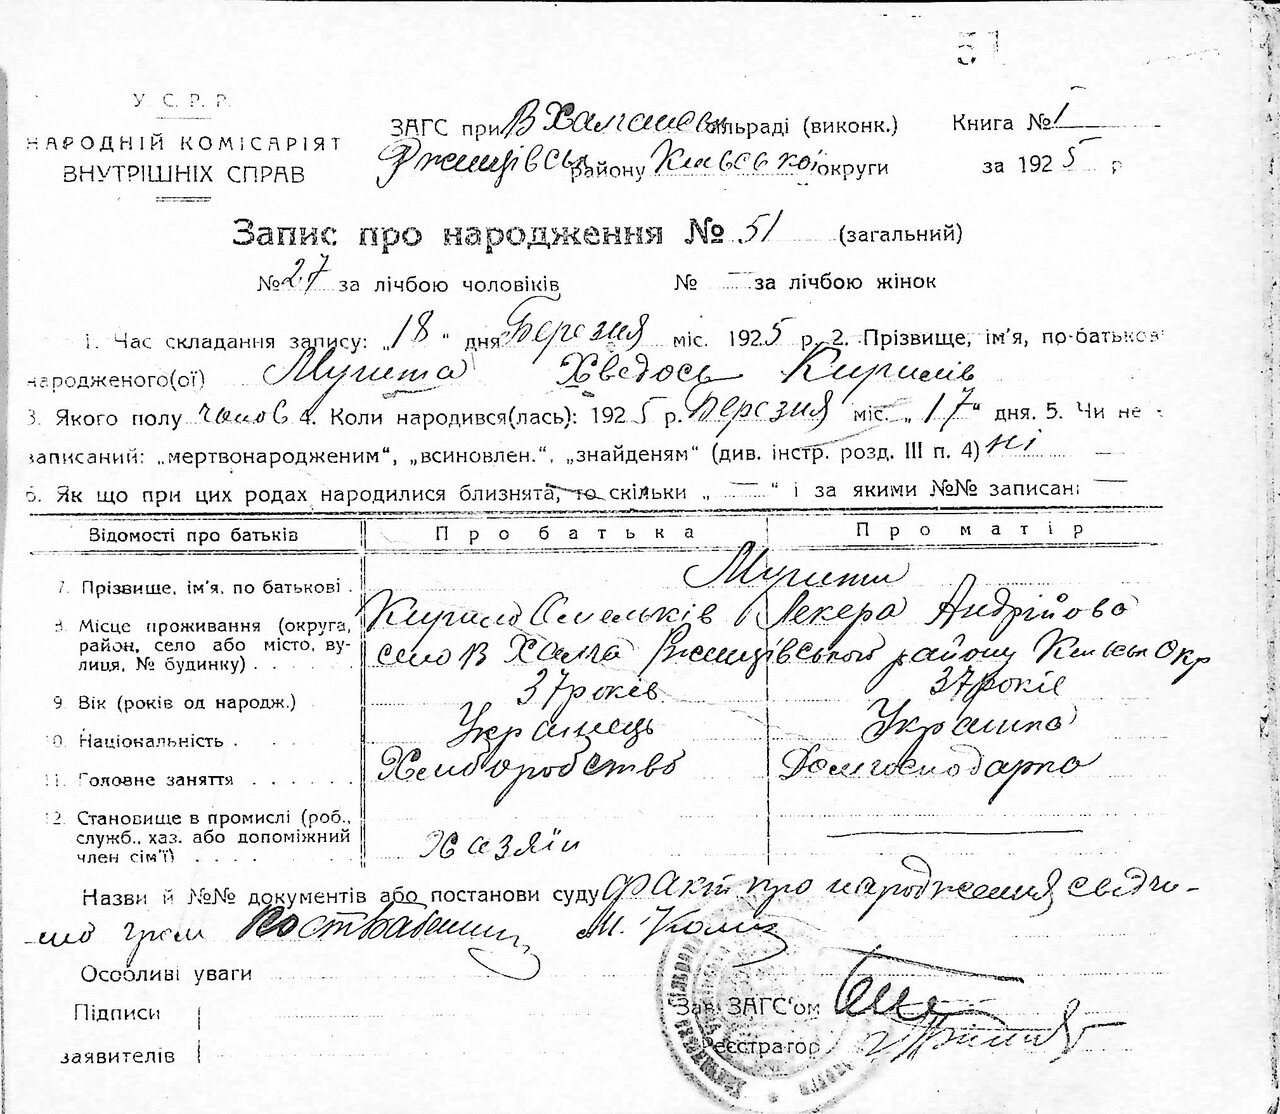 51
У.С.Р.Р.
НАРОДНІЙ КОМІСАРІЯТ
ВНУТРІШНІХ СПРАВ
ЗАГС при В Халчаськ сільраді (виконк.) Книга № 1
Ржищівськ району Київської округи за 1925 р
Запис про народження № 51 (загальний)
№ 27 за лічбою чоловіків № — за лічбою жінок
1. Час складання запису: „18“ дня Березня міс. 1925 р. 2. Прізвище, ім'я, по-батькові
народженого(ої) Хведось Кирилів
3. Якого полу чолов 4. Коли народився(лась): 1925 р. Березня міс. „17“ дня. 5. Чи не
записаний: „мертвонародженим“, „всиновлен.“, „знайденям“ (див. інстр. розд. III п. 4) ні —
6. Як що при цих родах народилися близнята, то скільки „—“ і за якими №№ записані —
Відомості про батьків Про батька Про матір
7. Прізвище, ім'я, по батькові .
Кирило Омельків Лекера Андрійова
8. Місце проживання (округа,
район, село або місто, ву-
лиця, № будинку) . . . .
село В Халча Ржищівського району Київськ Окр
9. Вік (років од народж.) 37 років 37 років
10. Національність . . . . . Українець Українка
11. Головне заняття . . . . . Хліборобство Домгосподарка
12. Становище в промислі (роб.,
служб., хаз. або допоміжний
член сім'ї) . . . . Хазяїн —
Назви й №№ документів або постанови суду факт про народження свідчи-
ло гром М.
Особливі уваги
Підписи
заявителів
Зав. ЗАГС'ом
Реєстратор